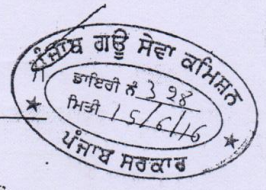 ਪੰਜਾਬ ਗਊ ਸੇਵਾ ਕਮਿਸ਼ਨ
ਡਾਇਰੀ ਨੰ 398
ਮਿਤੀ 15/6/16
ਪੰਜਾਬ ਸਰਕਾਰ